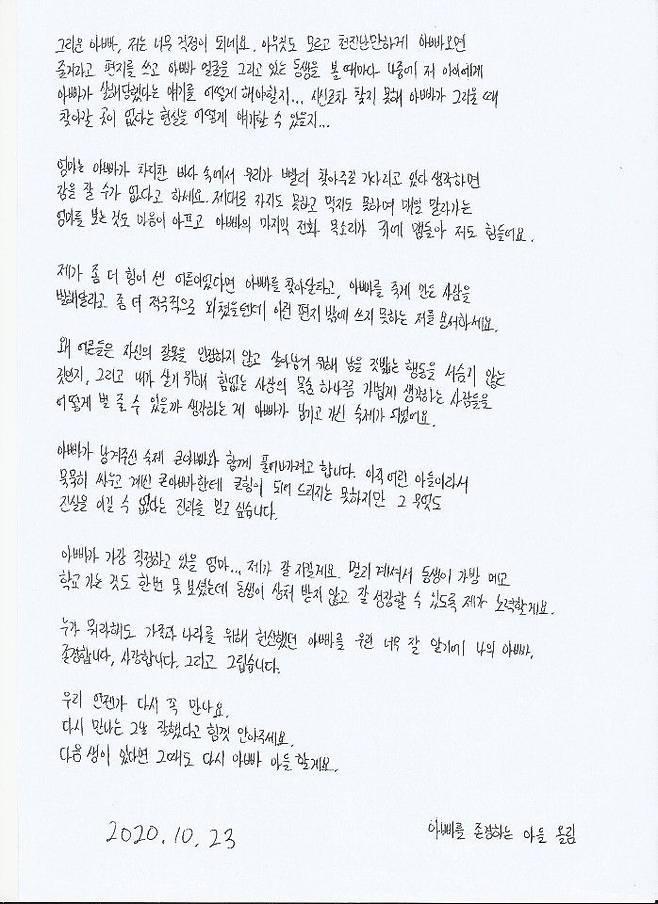 그리운 아빠, 저는 너무 걱정이 되네요. 아무것도 모르고 천진난만하게 아빠오면
줄거라고 편지를 쓰고 아빠 얼굴을 그리고 있는 동생을 볼 때마다 나중에 저 아이에게
아빠가 살해당했다는 얘기를 어떻게 해야할지... 시신조차 찾지 못해 아빠가 그리울 때
찾아갈 곳이 없다는 현실을 어떻게 얘기할 수 있을지...
엄마는 아빠가 차디찬 바다 속에서 우리가 빨리 찾아주길 기다리고 있다 생각하면
잠을 잘 수가 없다고 하세요. 제대로 자지도 못하고 먹지도 못하며 매일 말라가는
엄마를 보는 것도 마음이 아프고 아빠의 마지막 전화 목소리가 귀에 맴돌아 저도 힘들어요.
제가 좀 더 힘이 센 어른이었다면 아빠를 찾아달라고, 아빠를 죽게 만든 사람을
벌해달라고 좀 더 적극적으로 외쳤을텐데 이런 편지 밖에 쓰지 못하는 저를 용서하세요.
왜 어른들은 자신의 잘못을 인정하지 않고 살아남기 위해 남을 짓밟는 행동을 서슴지 않는
것인지, 그리고 내가 살기 위해 힘없는 사람의 목숨 하나쯤 가볍게 생각하는 사람들을
어떻게 벌 줄 수 있을까 생각하는 게 아빠가 남기고 가신 숙제가 되었어요.
아빠가 남겨주신 숙제 큰아빠와 함께 풀어나가려고 합니다. 아직 어린 아들이라서
묵묵히 싸우고 계신 큰아빠한테 큰힘이 되어 드리지는 못하지만 그 무엇도
진실을 이길 수 없다는 진리를 믿고 싶습니다.
아빠가 가장 걱정하고 있을 엄마... 제가 잘 지킬게요. 멀리 계셔서 동생이 가방 메고
학교 가는 것도 한번 못 보셨는데 동생이 상처 받지 않고 잘 성장할 수 있도록 제가 노력할게요.
누가 뭐라해도 가족과 나라를 위해 헌신했던 아빠를 우린 너무 잘 알기에 나의 아빠,
존경합니다, 사랑합니다. 그리고 그립습니다.
우리 언젠가 다시 꼭 만나요.
다시 만나는 그날 잘했다고 힘껏 안아주세요.
다음 생이 있다면 그때도 다시 아빠 아들 할게요.
2020.10.23
아빠를 존경하는 아들 올림